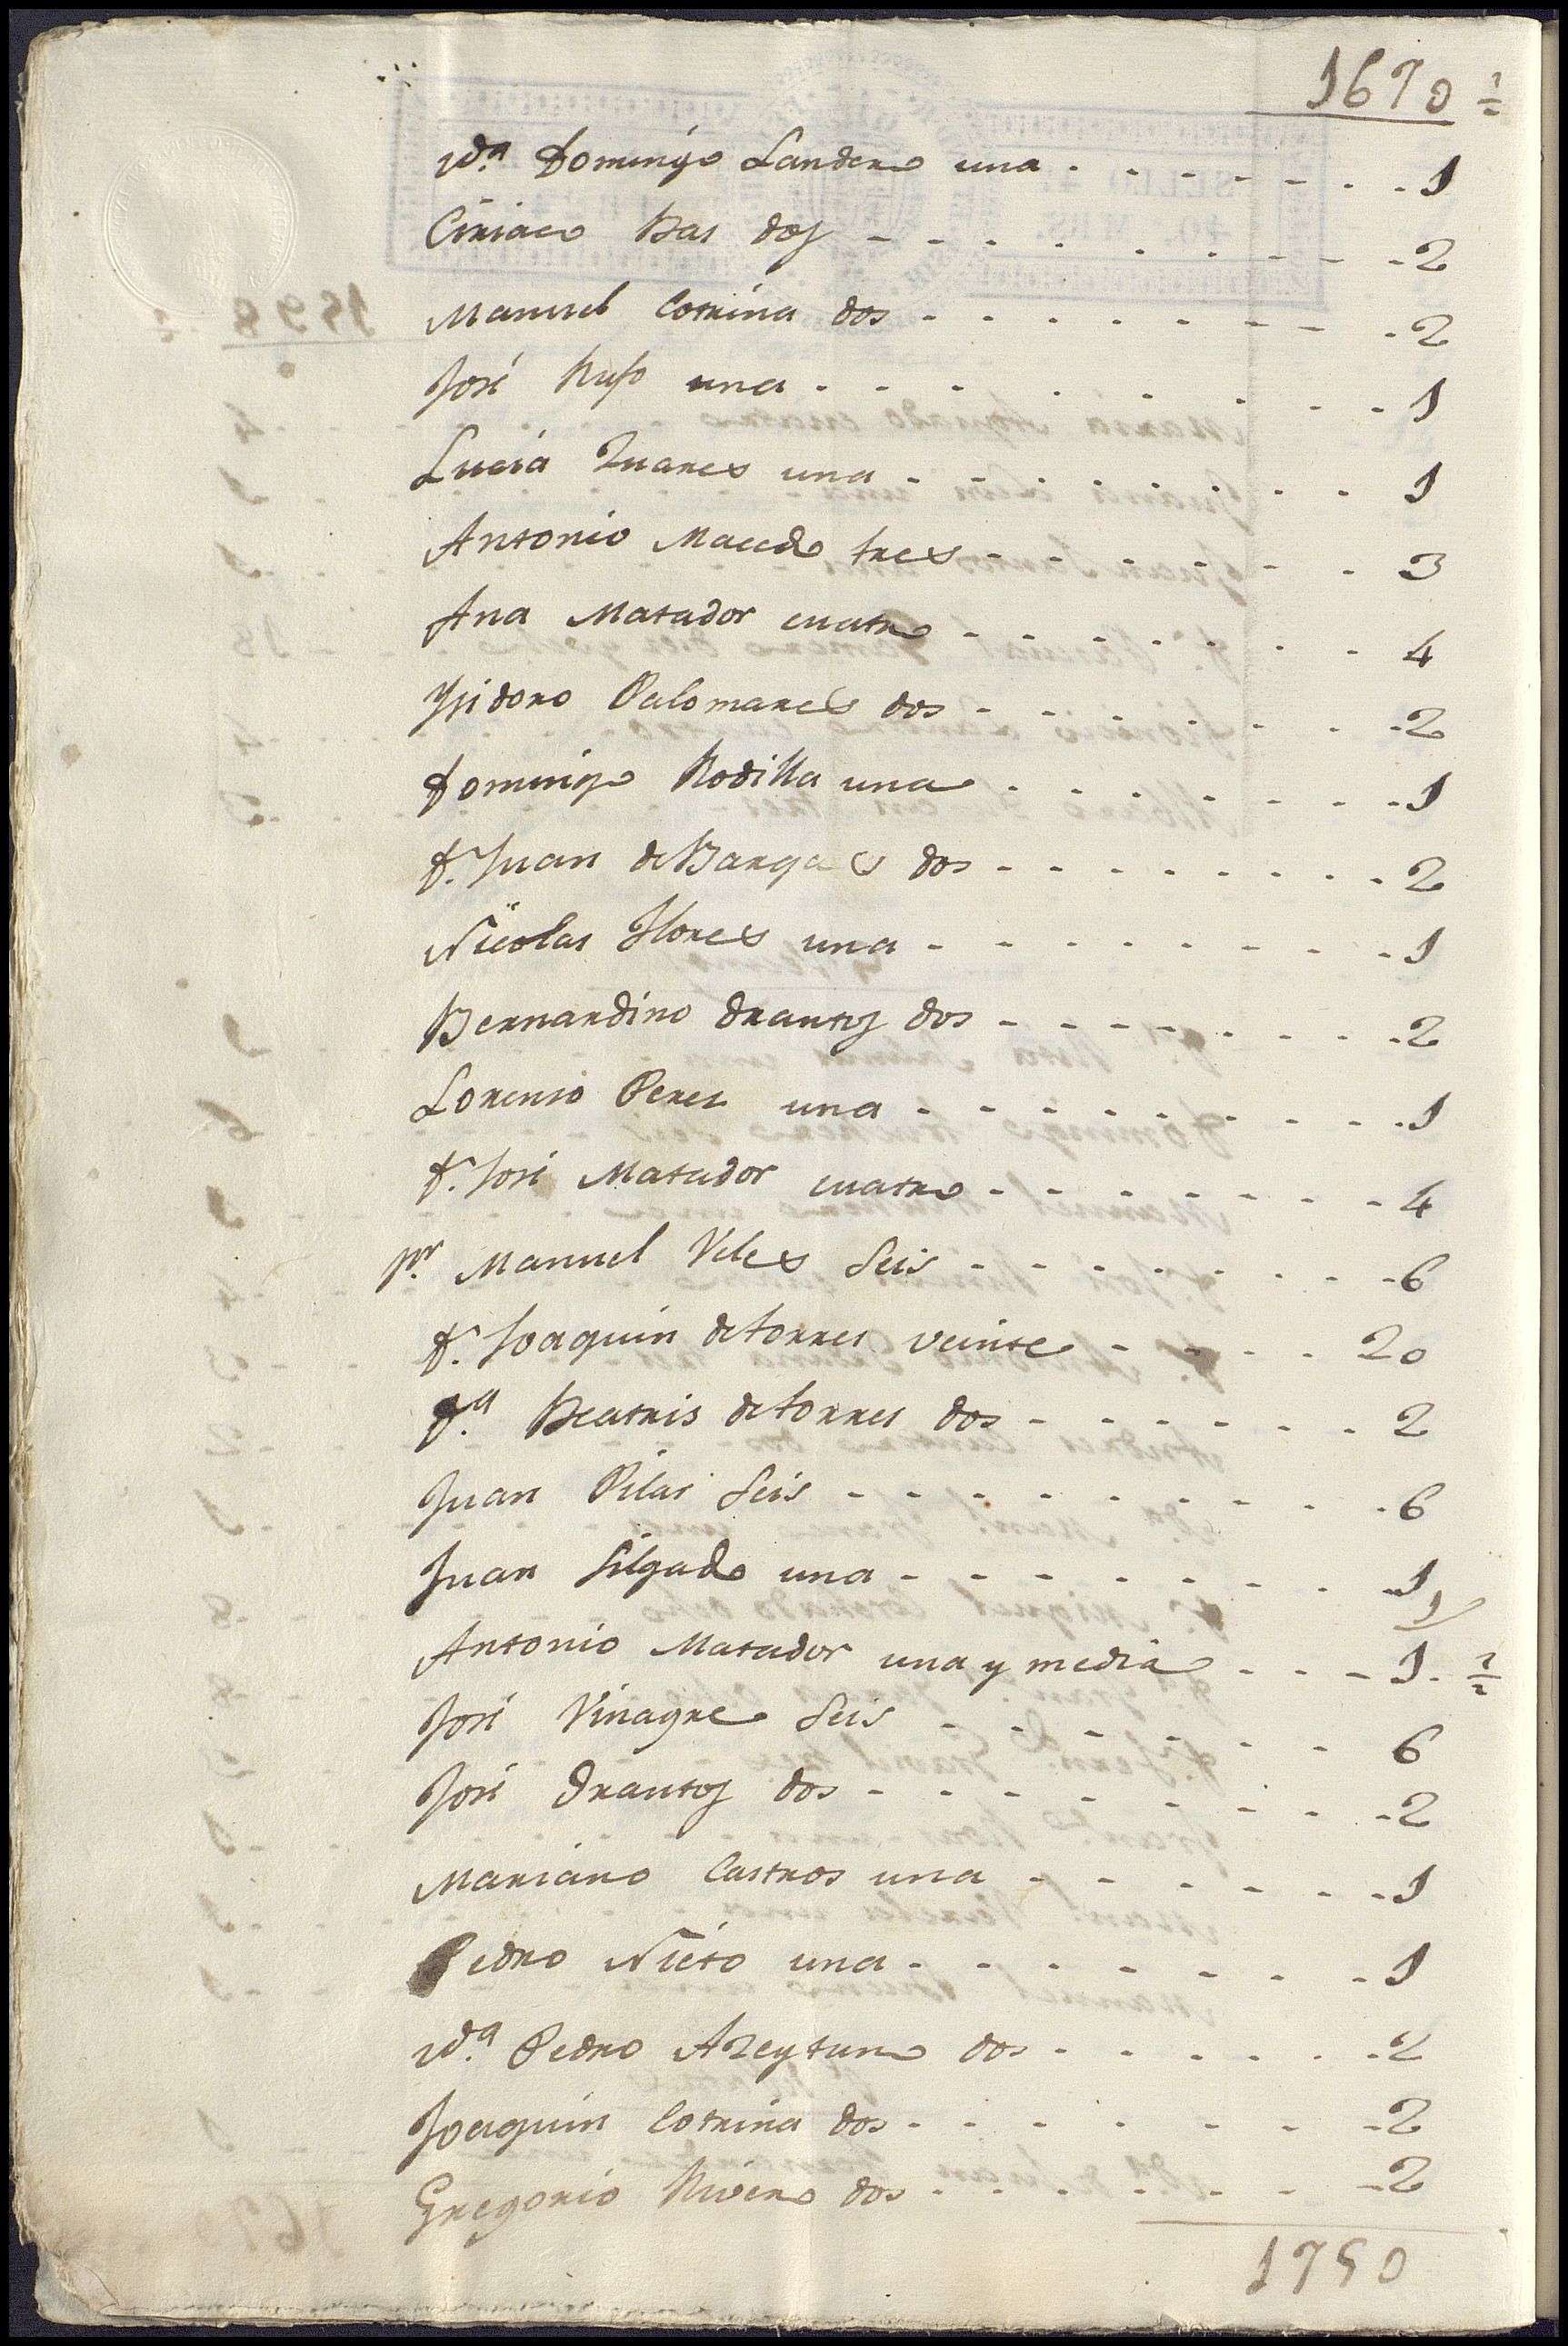 1670 ½
vdª Domingo Landero una - - - - - - - - 1
Ciriaco Bas dos - - - - - - - - - 2
Manuel Cotrina dos - - - - - - - - 2
José Rufo una - - - - - - - - - 1
Lucia Zuares una - - - - - - - - 1
Antonio Macedo tres - - - - - - - 3
Ana Matador cuatro - - - - - - - 4
Ysidoro Palomares dos - - - - - - - 2
Domingo Rodilla una - - - - - - - 1
D. Juan de Bargas dos - - - - - - - - 2
Nicolas Flores una - - - - - - - - 1
Bernardino Drantos dos - - - - - - - 2
Lorenso Peres una - - - - - - - - 1
D. José Matador cuatro - - - - - - - 4
pr. Manuel Veles Seis - - - - - - - - 6
D. Joaquin de torres veinte - - - - 20
Dª Beatris de torres dos - - - - - - 2
Juan Pilar Seis - - - - - - - - - 6
Juan Silgado una - - - - - - - - 1
Antonio Matador una y media - - - 1 ½
José Vinagre Seis - - - - - - - 6
José Drantos dos - - - - - - - - - 2
Mariano Castros una - - - - - - - 1
Pedro Nieto una - - - - - - - - 1
vdª Pedro Azeytuno dos - - - - - - 2
Joaquin Cotrina dos - - - - - - - 2
Gregorio Rivero dos - - - - - - - 2
1750